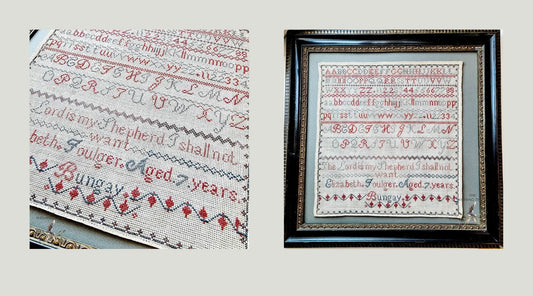 aabbccddeeffgghhijjkkllmmnnoopp
pqrrssttuuvvwwxyyzz.112233
ABCDEFGHIJKLMN
OPQRSTUVWXYZ
Lord is my Shepherd I shall not
want
beth. Foulger. Aged. 7. years.
Bungay.
AABBCCDDEEFFGGHHIIJJKKLL
aabbccddeeffgghhijjkkllmmnnoopp
pqrrssttuuvvwwxyyzz.112233
ABCDEFGHIJKLMN
OPQRSTUVWXYZ
The Lord is my Shepherd I shall not
want
Elizabeth. Foulger. Aged. 7. years.
Bungay.